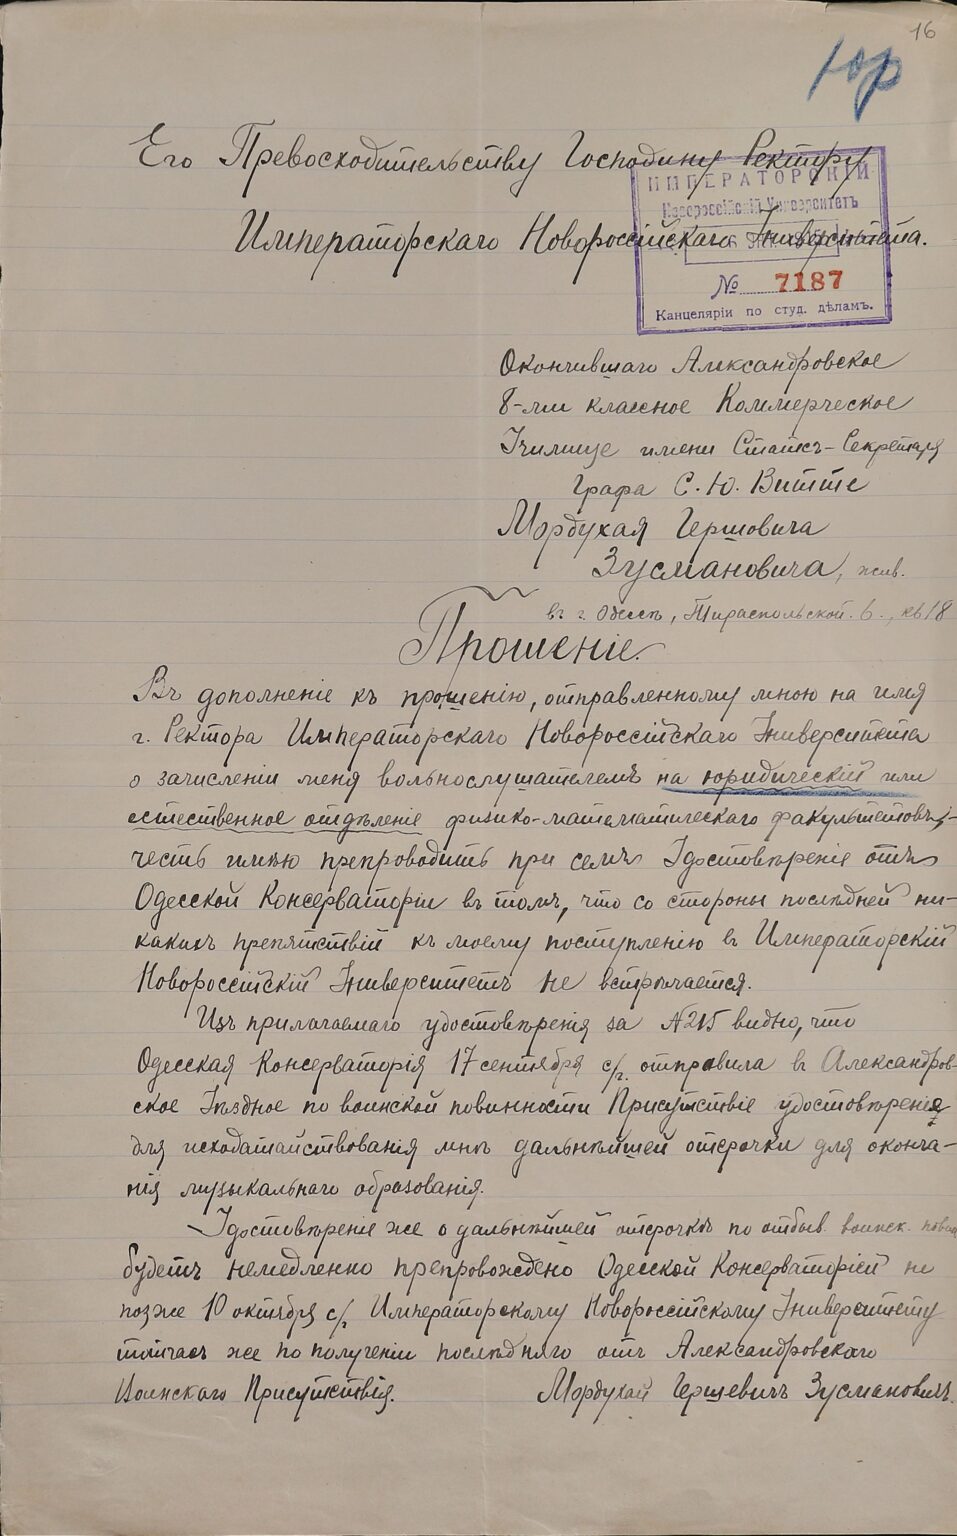 16
Юр
Его Превосходительству Господину Ректору
ИМПЕРАТОРСКІЙ
Новороссійскій Университетъ
Императорскаго Новороссійскаго Университета.
№ 7187
Канцеляріи по студ. дѣламъ.
Окончившаго Александровское
8-ми классное Коммерческое
Училище имени Статсъ-Секретаря
Графа С. Ю. Витте
Мордухая Гершовича
Зусмановича, жив.
въ г. Одессѣ, Тираспольской. 6., кв 18
Прошеніе.
Въ дополненіе къ прошенію, отправленному мною на имя
г. Ректора Императорскаго Новороссійскаго Университета
о зачисленіи меня вольнослушателемъ на юридическій или
естественное отдѣленіе физико-математическаго факультетовъ,-
честь имѣю препроводить при семъ Удостовѣреніе отъ
Одесской Консерваторіи въ томъ, что со стороны послѣдней ни-
какихъ препятствій къ моему поступленію въ Императорскій
Новороссійскій Университетъ не встрѣчается.
Изъ прилагаемаго удостовѣренія за №215 видно, что
Одесская Консерваторія 17 сентября с/г. отправила въ Александров-
ское Уѣздное по воинской повинности Присутствіе удостовѣреніе
для исходатайствованія мнѣ дальнѣйшей отсрочки для оконча-
нія музыкальнаго образованія.
Удостовѣреніе же о дальнѣйшей отсрочкѣ по отбыв. воинск. повин
будетъ немедленно препровождено Одесской Консерваторіей не
позже 10 октября с/г. Императорскому Новороссійскому Университету
тотчасъ же по полученіи послѣдняго отъ Александровскаго
Воинскаго Присутствія. Мордухай Гершевичъ Зусмановичъ.